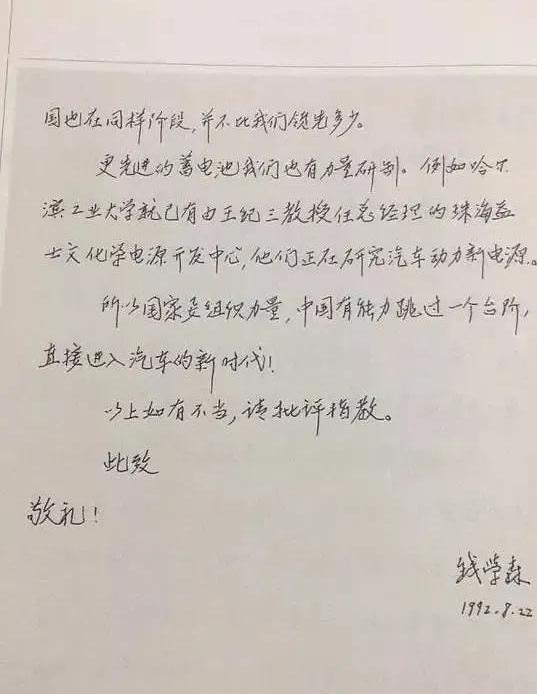 国也在同样阶段，并不比我们领先多少。
更先进的蓄电池我们也有力量研制。例如哈尔
滨工业大学就已有由王纪三教授任总经理的珠海益
士文化学电源开发中心，他们正在研究汽车动力新电源。
所以国家要组织力量，中国有能力跳过一个台阶，
直接进入汽车的新时代！
以上如有不当，请批评指教。
此致
敬礼！
钱学森
1992.8.22